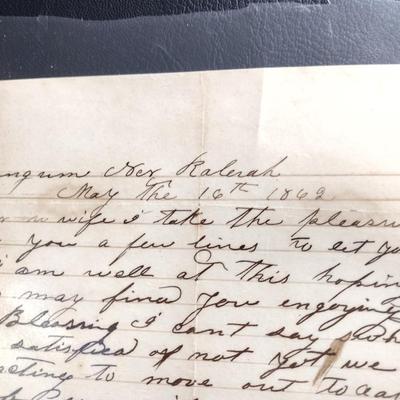 angum Ner Kalerah
May the 16th 1862
wife i take the pleasur
you a few lines to let yo
i am well at this hopin
may find you engoying
Blessing i cant say wh
satisfied or not yet we
acting to move out to